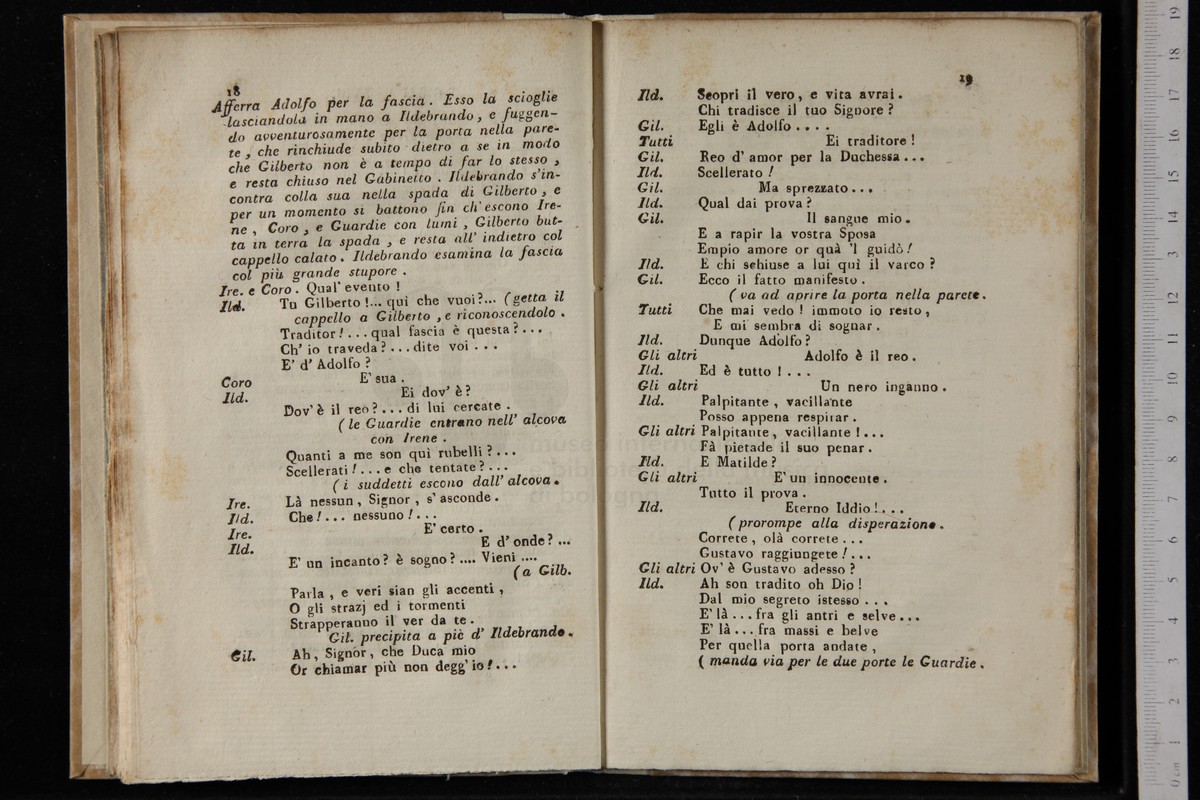 18
Afferra Adolfo per la fascia. Esso la scioglie
lasciandola in mano a Ildebrando, e fuggen-
do avventurosamente per la porta nella pare-
te, che rinchiude subito dietro a se in modo
che Gilberto non è a tempo di far lo stesso,
e resta chiuso nel Gabinetto. Ildebrando s'in-
contra colla sua nella spada di Gilberto, e
per un momento si battono fin ch'escono Ire-
ne, Coro, e Guardie con lumi, Gilberto but-
ta in terra la spada, e resta all' indietro col
cappello calato. Ildebrando esamina la fascia
col più grande stupore.
Ire. e Coro. Qual' evento!
Ild. Tu Gilberto!... qui che vuoi?... (getta il
cappello a Gilberto, e riconoscendolo.
Traditor!...qual fascia è questa?...
Ch' io traveda?...dite voi...
E' d' Adolfo?
Coro E' sua.
Ild. Ei dov' è?
Dov' è il reo?...di lui cercate.
(le Guardie entrano nell' alcova
con Irene.
Quanti a me son quì rubelli?...
Scellerati!...e che tentate?...
(i suddetti escono dall' alcova.
Ire. Là nessun, Signor, s' asconde.
Ild. Che!... nessuno!...
Ire. E' certo.
Ild. E d' onde?...
E' un incanto? è sogno?.... Vieni....
(a Gilb.
Parla, e veri sian gli accenti,
O gli strazj ed i tormenti
Strapperanno il ver da te.
Gil. precipita a piè d' Ildebrando.
Gil. Ah, Signor, che Duca mio
Or chiamar più non degg' io!...
19
Ild. Scopri il vero, e vita avrai.
Chi tradisce il tuo Signore?
Gil. Egli è Adolfo....
Tutti Ei traditore!
Gil. Reo d' amor per la Duchessa...
Ild. Scellerato!
Gil. Ma sprezzato...
Ild. Qual dai prova?
Gil. Il sangue mio.
E a rapir la vostra Sposa
Empio amore or quà 'l guidò!
Ild. E chi schiuse a lui quì il varco?
Gil. Ecco il fatto manifesto.
(va ad aprire la porta nella parete.
Tutti Che mai vedo! immoto io resto,
E mi sembra di sognar.
Ild. Dunque Adolfo?
Gli altri Adolfo è il reo.
Ild. Ed è tutto!...
Gli altri Un nero inganno.
Ild. Palpitante, vacillante
Posso appena respirar.
Gli altri Palpitante, vacillante!...
Fà pietade il suo penar.
Ild. E Matilde?
Gli altri E' un innocente.
Tutto il prova.
Ild. Eterno Iddio!...
(prorompe alla disperazione.
Correte, olà correte...
Gustavo raggiungete!...
Gli altri Ov' è Gustavo adesso?
Ild. Ah son tradito oh Dio!
Dal mio segreto istesso...
E' là...fra gli antri e selve...
E' là...fra massi e belve
Per quella porta andate,
(manda via per le due porte le Guardie.